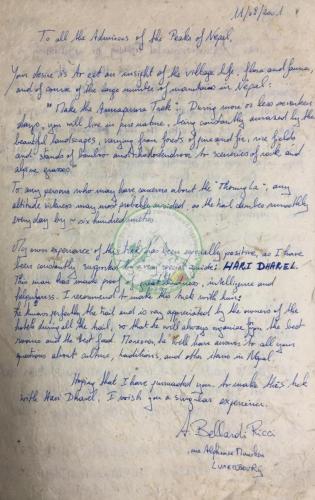 To all the Admirors of the Peaks of Nepal,
Your desire is to get an insight of the village life, flora and fauna,
and of course of the large number of mountains in Nepal:
"Make the Annapurna Trek". During more or less seventeen
days, you will live in pure nature, being constantly amazed by the
beautiful landscapes, varying from forests of pine and fir, rice fields
and stands of bamboo and rhododendrons to sceneries of rock and
alpine grasses.
To any persons who may have concerns about the "Thorung La", any
altitude sickness may most probably avoided, as the trail climbs smoothly
everyday by six hundred metres.
My own experience of this trek has been especially positive, as I have
been constantly by a very special guide: HARI DHAREL.
This man has made proof of intelligence and
. I recommend to make this trek with him:
he knows perfectly the trail and is very appreciated by the owners of the
hotels during all the trail, so that he will always organize you the best
rooms and the best food. Moreover, he will have answers to all your
questions about culture, traditions, and other items in Nepal.
Hoping that I have persuaded you to make this trek
with Hari Dharel, I wish you a singular experience.
A. Bellardi Ricci
rue Alphonse Munchen
LUXEMBOURG